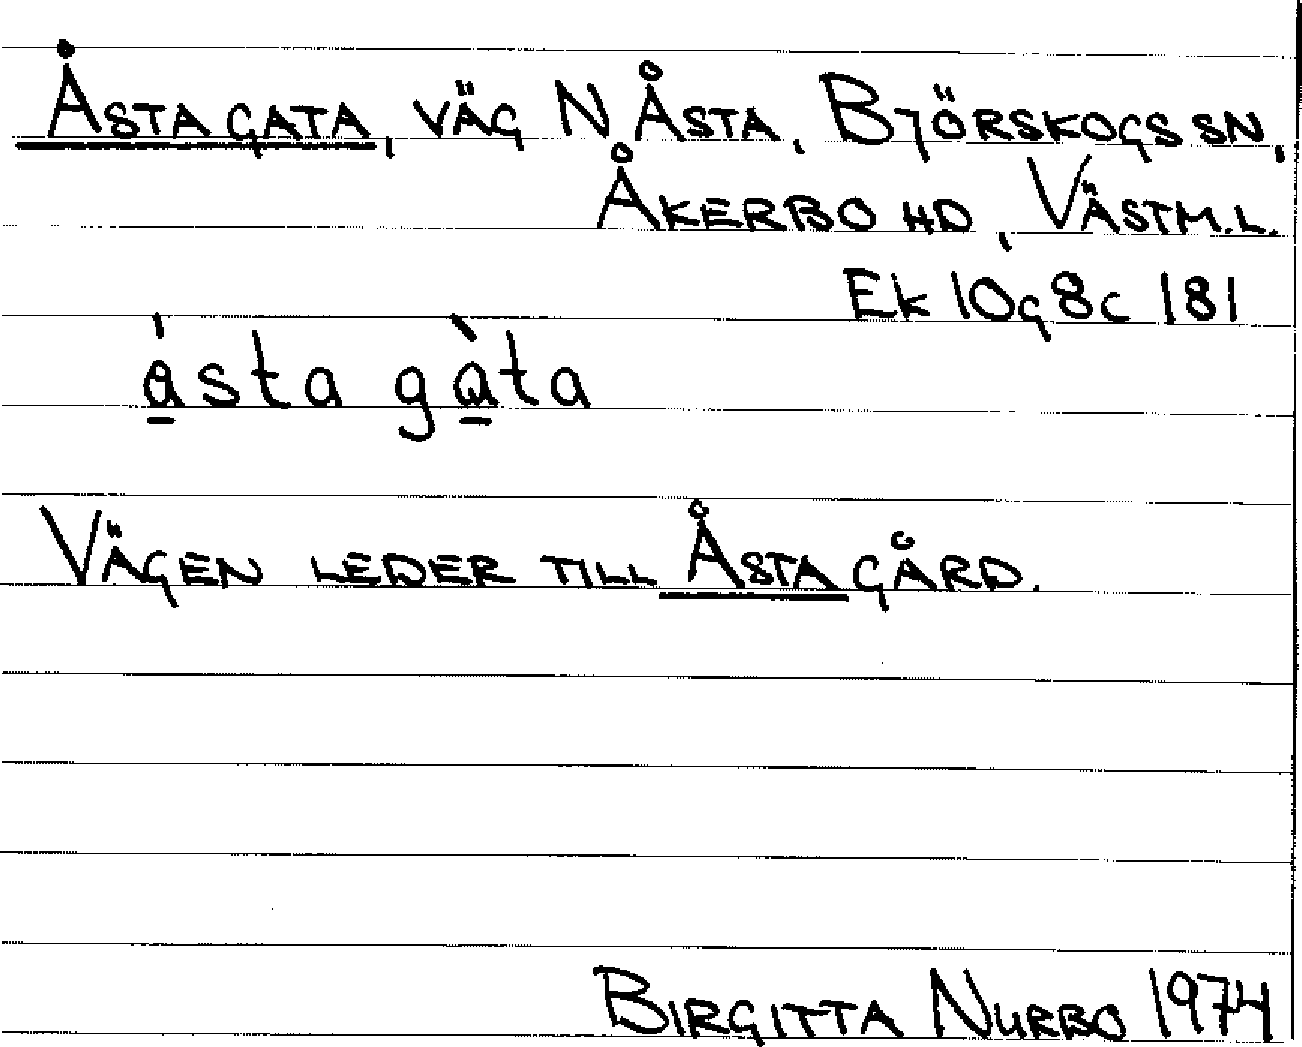 ÅSTA GATA, VÄG N ÅSTA, BJÖRSKOGS SN,
ÅKERBO HD, VÄSTM.L.
EK 10g8c 181
ásta gàta
VÄGEN LEDER TILL ÅSTA GÅRD.
BIRGITTA NURBO 1974